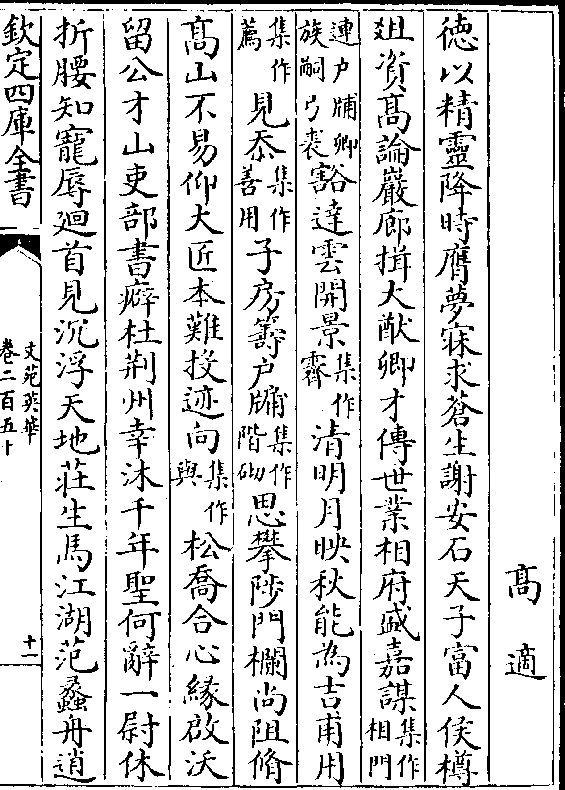 髙適
徳以精靈降時膺夢寐求蒼生謝安石天子富人侯樽
爼資髙論巖廊揖大猷卿才傳世業相府盛嘉謀集作相門
連户牖卿族嗣弓裘豁達雲開景集作霽清明月映秋能為吉甫用
集作薦見忝集作善用子房籌户牖集作階砌思攀陟門欄尚阻脩
髙山不易仰大匠本難投迹向集作與松喬合心緣啟沃
留公才山吏部書癖杜荆州幸沐千年聖何辭一尉休
折腰知寵辱廻首見沉浮天地莊生馬江湖范蠡舟逍
欽定四庫全書
文苑英華
卷二百五十
十一